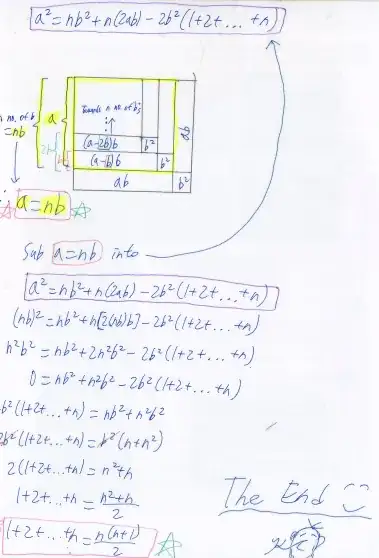 a² = nb² + n(2ab) - 2b²(1+2+... +n)
n no. of b
= nb
a
2b
b
Towards n no. of b's
(a-2b)b b²
(a-b)b b²
ab
ab b²
∴ a = nb
Sub a=nb into
a² = nb² + n(2ab) - 2b²(1+2+... +n)
(nb)² = nb² + n[2(nb)b] - 2b²(1+2+... +n)
n²b² = nb² + 2n²b² - 2b²(1+2+... +n)
0 = nb² + n²b² - 2b²(1+2+... +n)
b²(1+2+... +n) = nb² + n²b²
2b²(1+2+... +n) = b²(n+n²)
2(1+2+... +n) = n²+n
1+2+... +n = n²+n/2
The End
1+2+... +n = n(n+1)/2